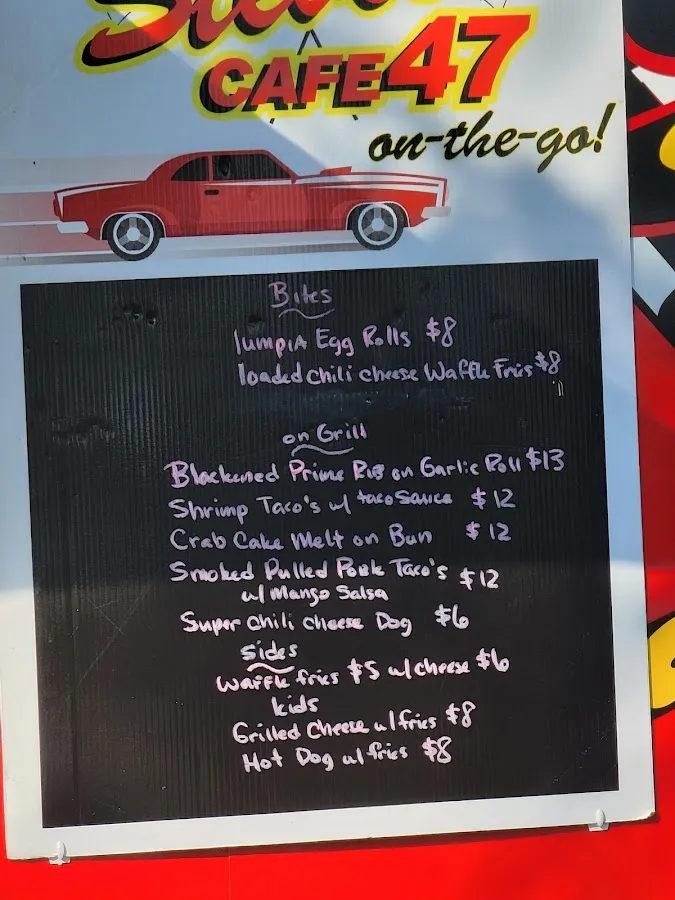 CAFE 47
on-the-go!
Bites
lumpia Egg Rolls $8
loaded chili cheese Waffle Fries $8
on Grill
Blackened Prime Rib on Garlic Roll $13
Shrimp Taco's w/ taco Sauce $12
Crab Cake Melt on Bun $12
Smoked Pulled Pork Taco's $12
w/ Mango Salsa
Super Chili Cheese Dog $6
Sides
Waffle fries $5 w/ cheese $6
kids
Grilled Cheese w/ fries $8
Hot Dog w/ fries $8